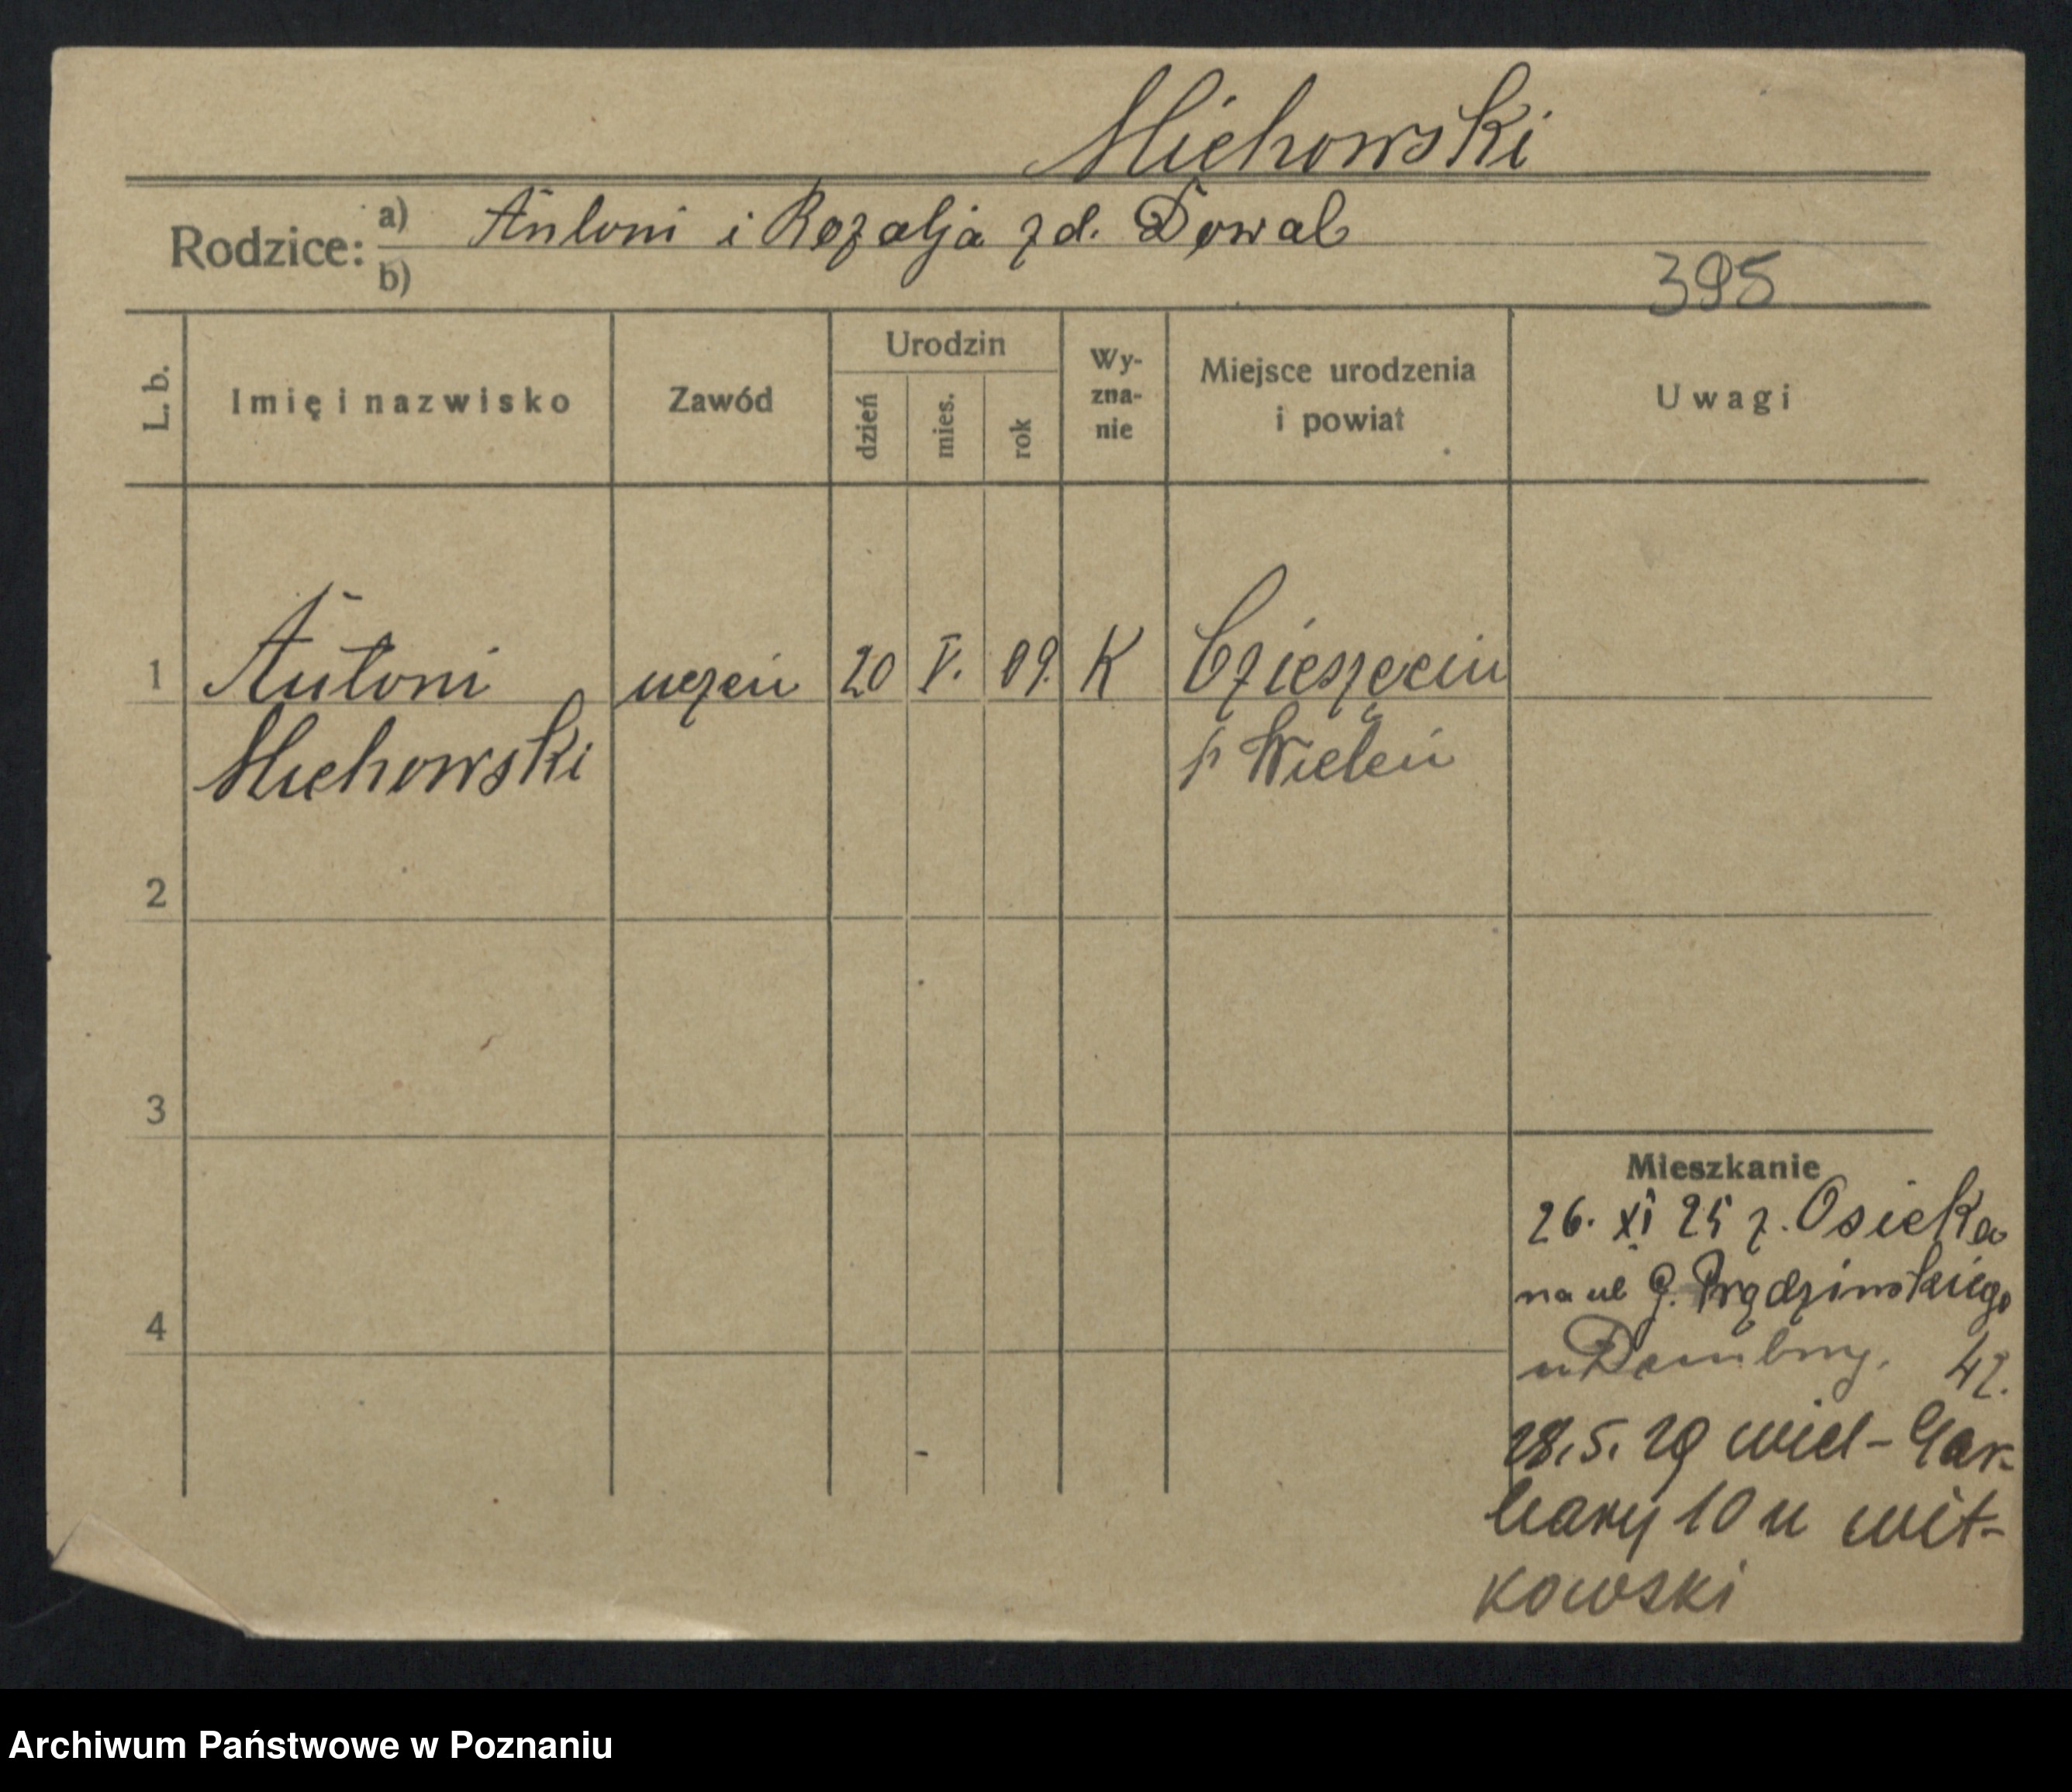 Michowski
Rodzice: a) Antoni i Rozalja zd. Dowal
b)
395
L. b. Imię i nazwisko Zawód Urodzin dzień mies. rok Wy-zna-nie Miejsce urodzenia i powiat Uwagi
1 Antoni uczeń 20 V. 09. K
Michowski p Wieleń
2
3
Mieszkanie
26. XI 25 z. Osieka
na ul G. Prądzińskiego
4
u 42.
28.5.29 Wiel-Gar-
bary 10 u Wit-
kowski
Archiwum Państwowe w Poznaniu